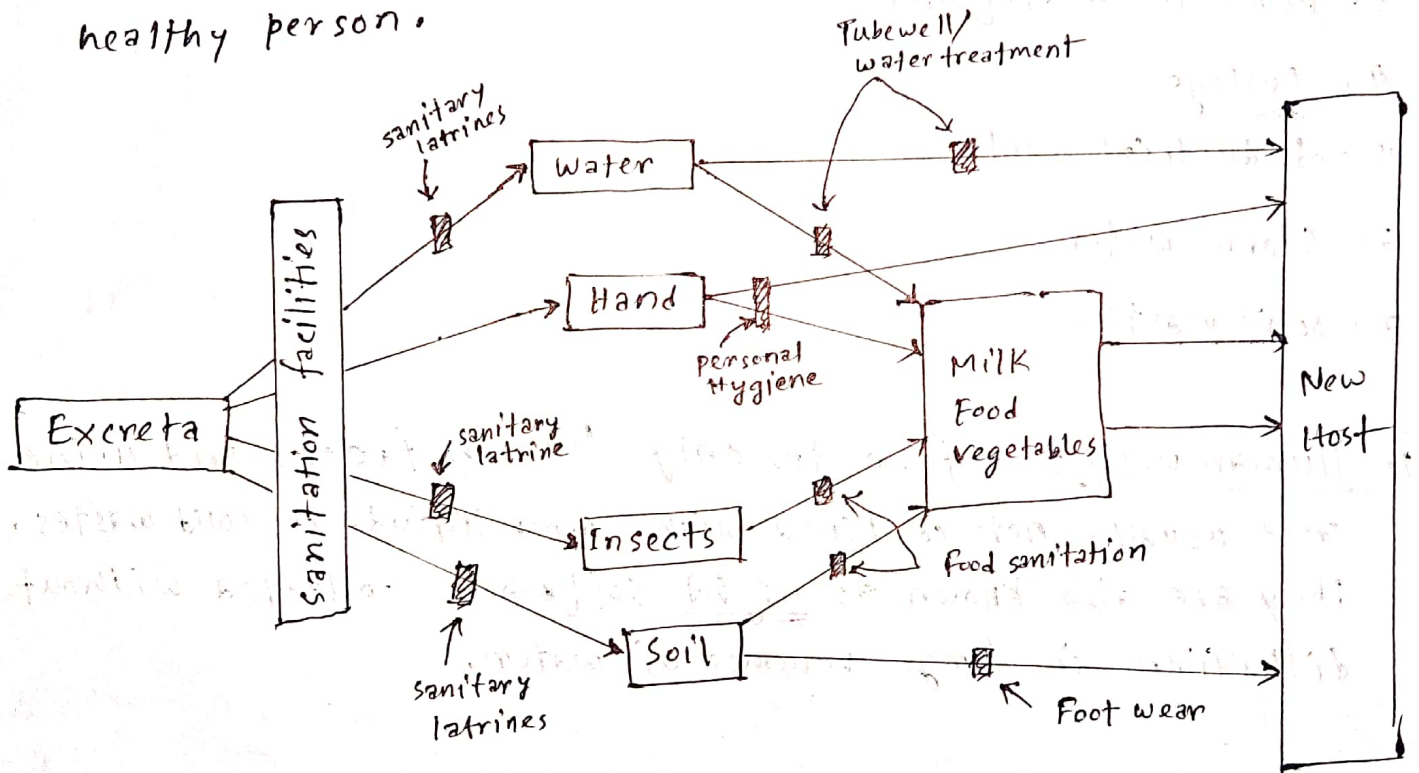 healthy person.
Tubewell/
water treatment
sanitary
latrines
Water
sanitation facilities
Hand
personal
Hygiene
Milk
Food
vegetables
New
Host
Excreta
sanitary
latrine
Insects
food sanitation
Soil
sanitary
latrines
Foot wear